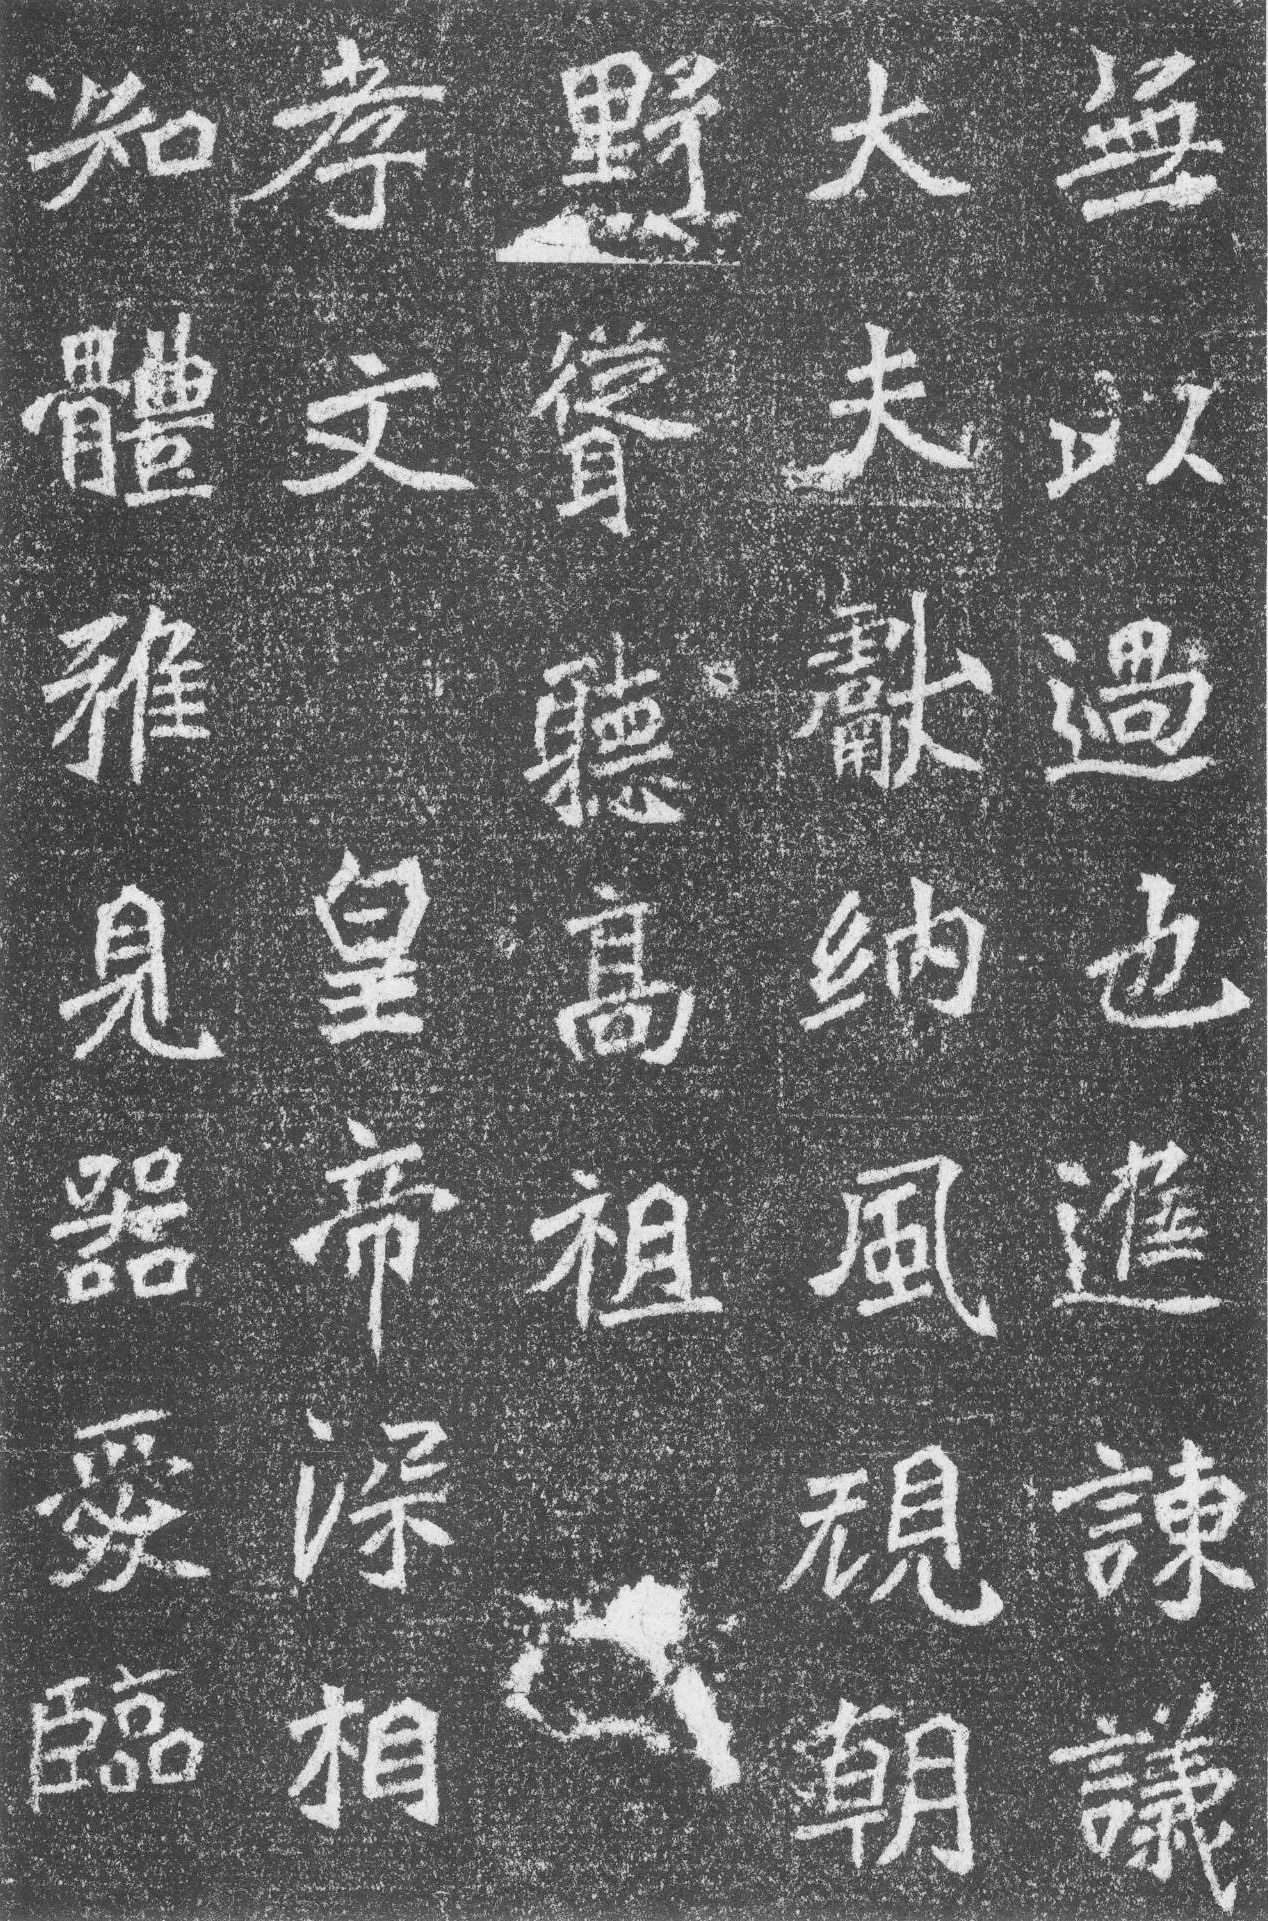 無以過也進諫議
大夫獻納風規朝
野聳聽高祖
孝文皇帝深相
知體雅見器愛臨